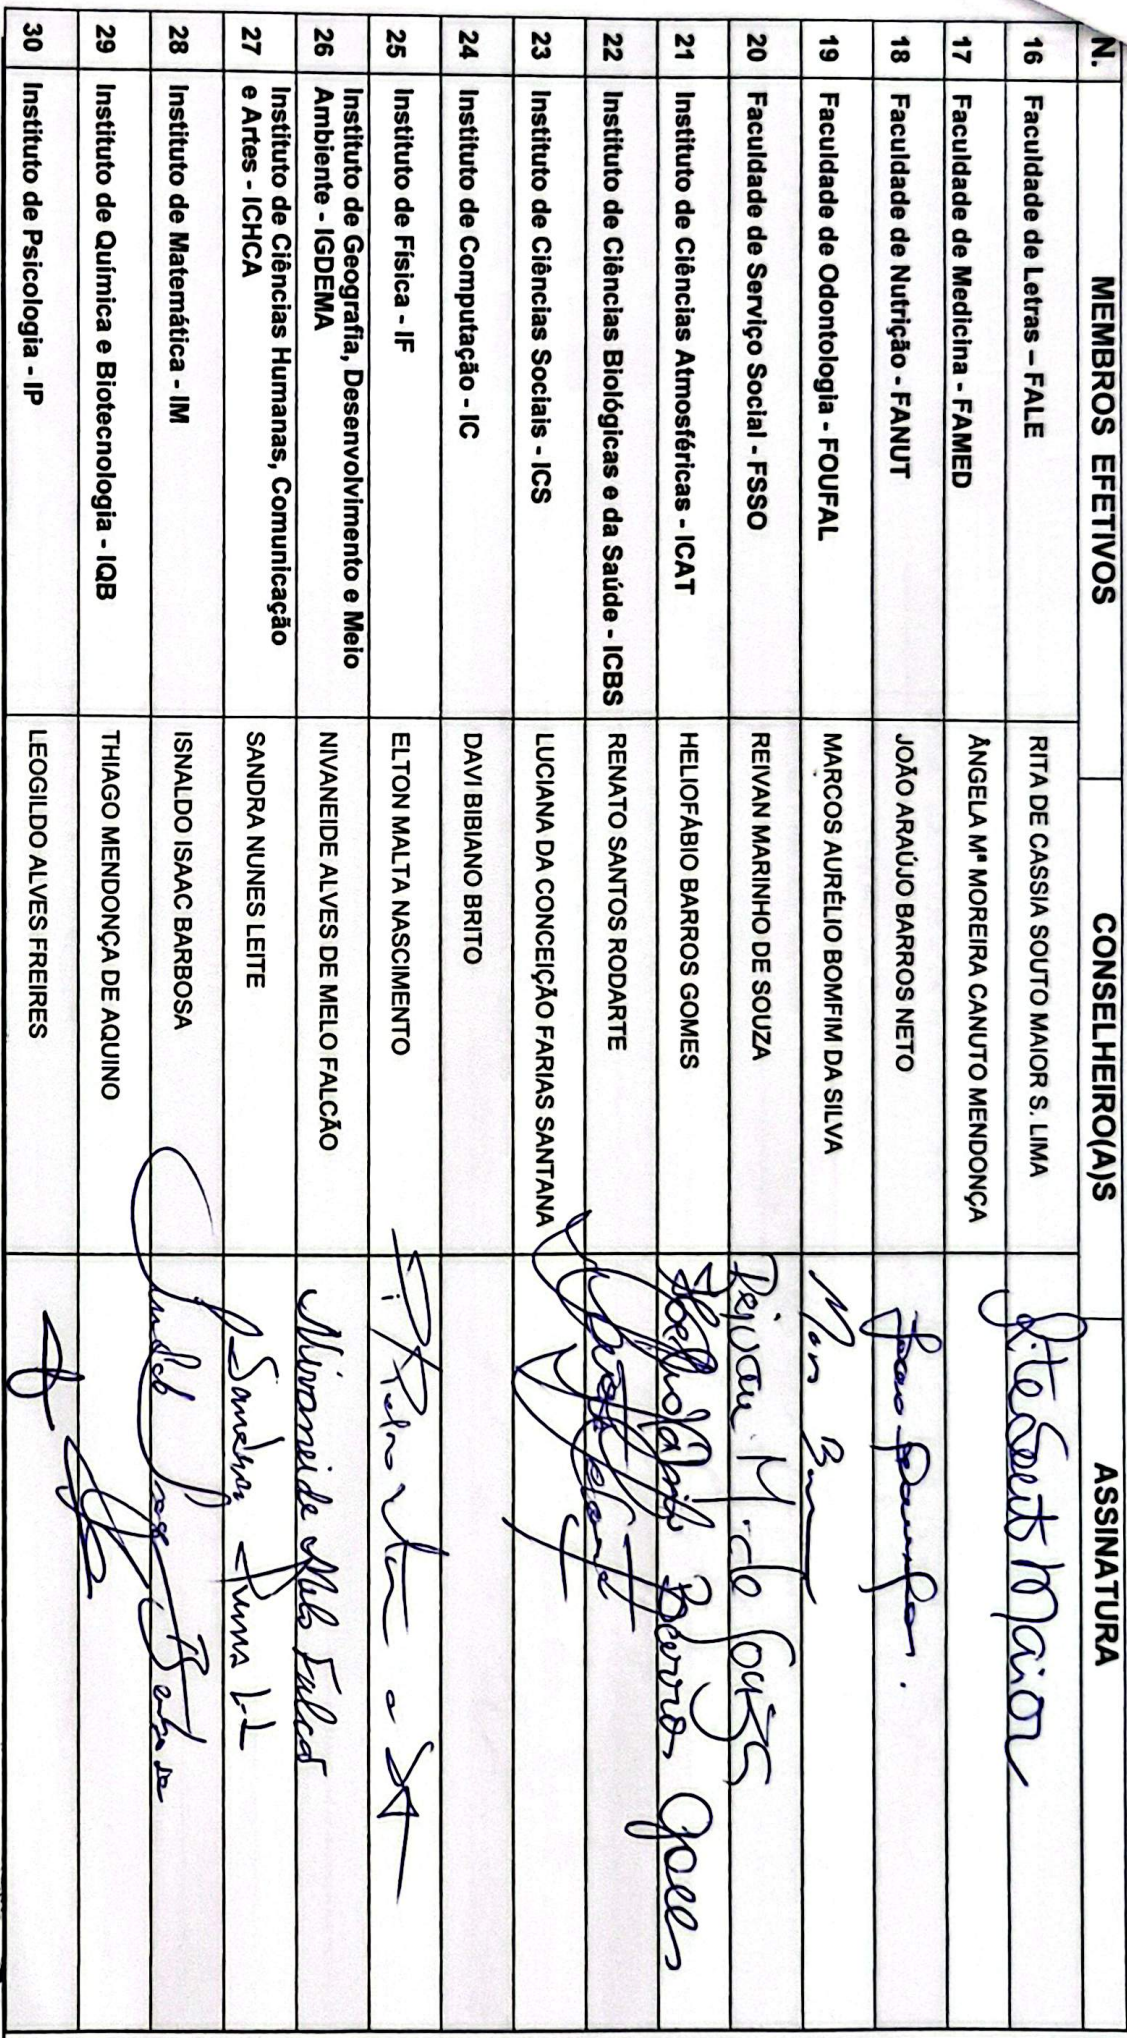 N. MEMBROS EFETIVOS CONSELHEIRO(A)S ASSINATURA
16 Faculdade de Letras – FALE RITA DE CASSIA SOUTO MAIOR S. LIMA Rita Souto Maior
17 Faculdade de Medicina - FAMED ÂNGELA Mª MOREIRA CANUTO MENDONÇA
18 Faculdade de Nutrição - FANUT JOÃO ARAÚJO BARROS NETO
19 Faculdade de Odontologia - FOUFAL MARCOS AURÉLIO BOMFIM DA SILVA
20 Faculdade de Serviço Social - FSSO REIVAN MARINHO DE SOUZA Reivan M. de Souza
21 Instituto de Ciências Atmosféricas - ICAT HELIOFÁBIO BARROS GOMES Heliofábio Barros Gomes
22 Instituto de Ciências Biológicas e da Saúde - ICBS RENATO SANTOS RODARTE
23 Instituto de Ciências Sociais - ICS LUCIANA DA CONCEIÇÃO FARIAS SANTANA
24 Instituto de Computação - IC DAVI BIBIANO BRITO
25 Instituto de Física - IF ELTON MALTA NASCIMENTO
26 Instituto de Geografia, Desenvolvimento e Meio
Ambiente - IGDEMA NIVANEIDE ALVES DE MELO FALCÃO Nivaneide Melo Falcão
27 Instituto de Ciências Humanas, Comunicação
e Artes - ICHCA SANDRA NUNES LEITE Sandra Nunes
28 Instituto de Matemática - IM ISNALDO ISAAC BARBOSA
29 Instituto de Química e Biotecnologia - IQB THIAGO MENDONÇA DE AQUINO
30 Instituto de Psicologia - IP LEOGILDO ALVES FREIRES